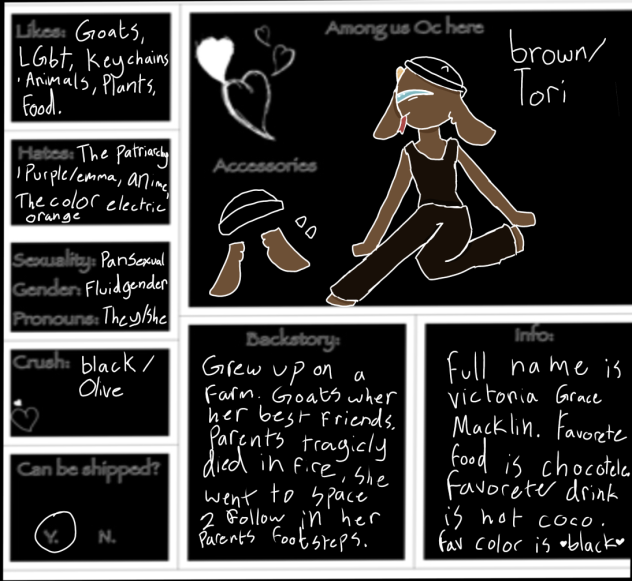 Likes: Goats,
LGbt, Keychains
Animals, Plants,
Food.
Hates: The Patriarchy
Purple/emma, anime,
The color electric
orange
Sexuality: Pansexual
Gender: Fluidgender
Pronouns: They/she
Crush: black/
Olive
Can be shipped?
Y. N.
Among us Oc here
brown/
Tori
Accessories
Backstory:
Grew up on a
Farm. Goats wher
her best friends.
Parents tragicly
died in fire, she
went to space
2 follow in her
Parents footsteps.
Info:
Full name is
victoria Grace
Macklin. Favorete
food is chocotele
Favorete drink
is hot coco.
Fav color is ♥black♥